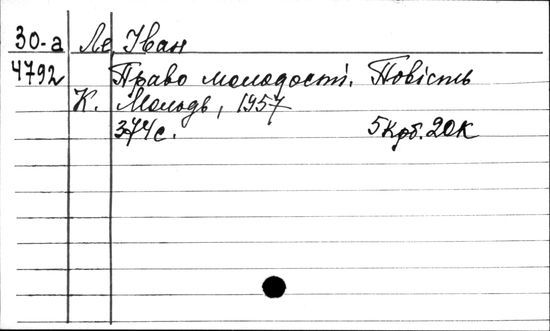 30-а Ле, Іван
4792 Право молодості. Повість
К. Молодь, 1957
374 с. 5 крб. 20 к